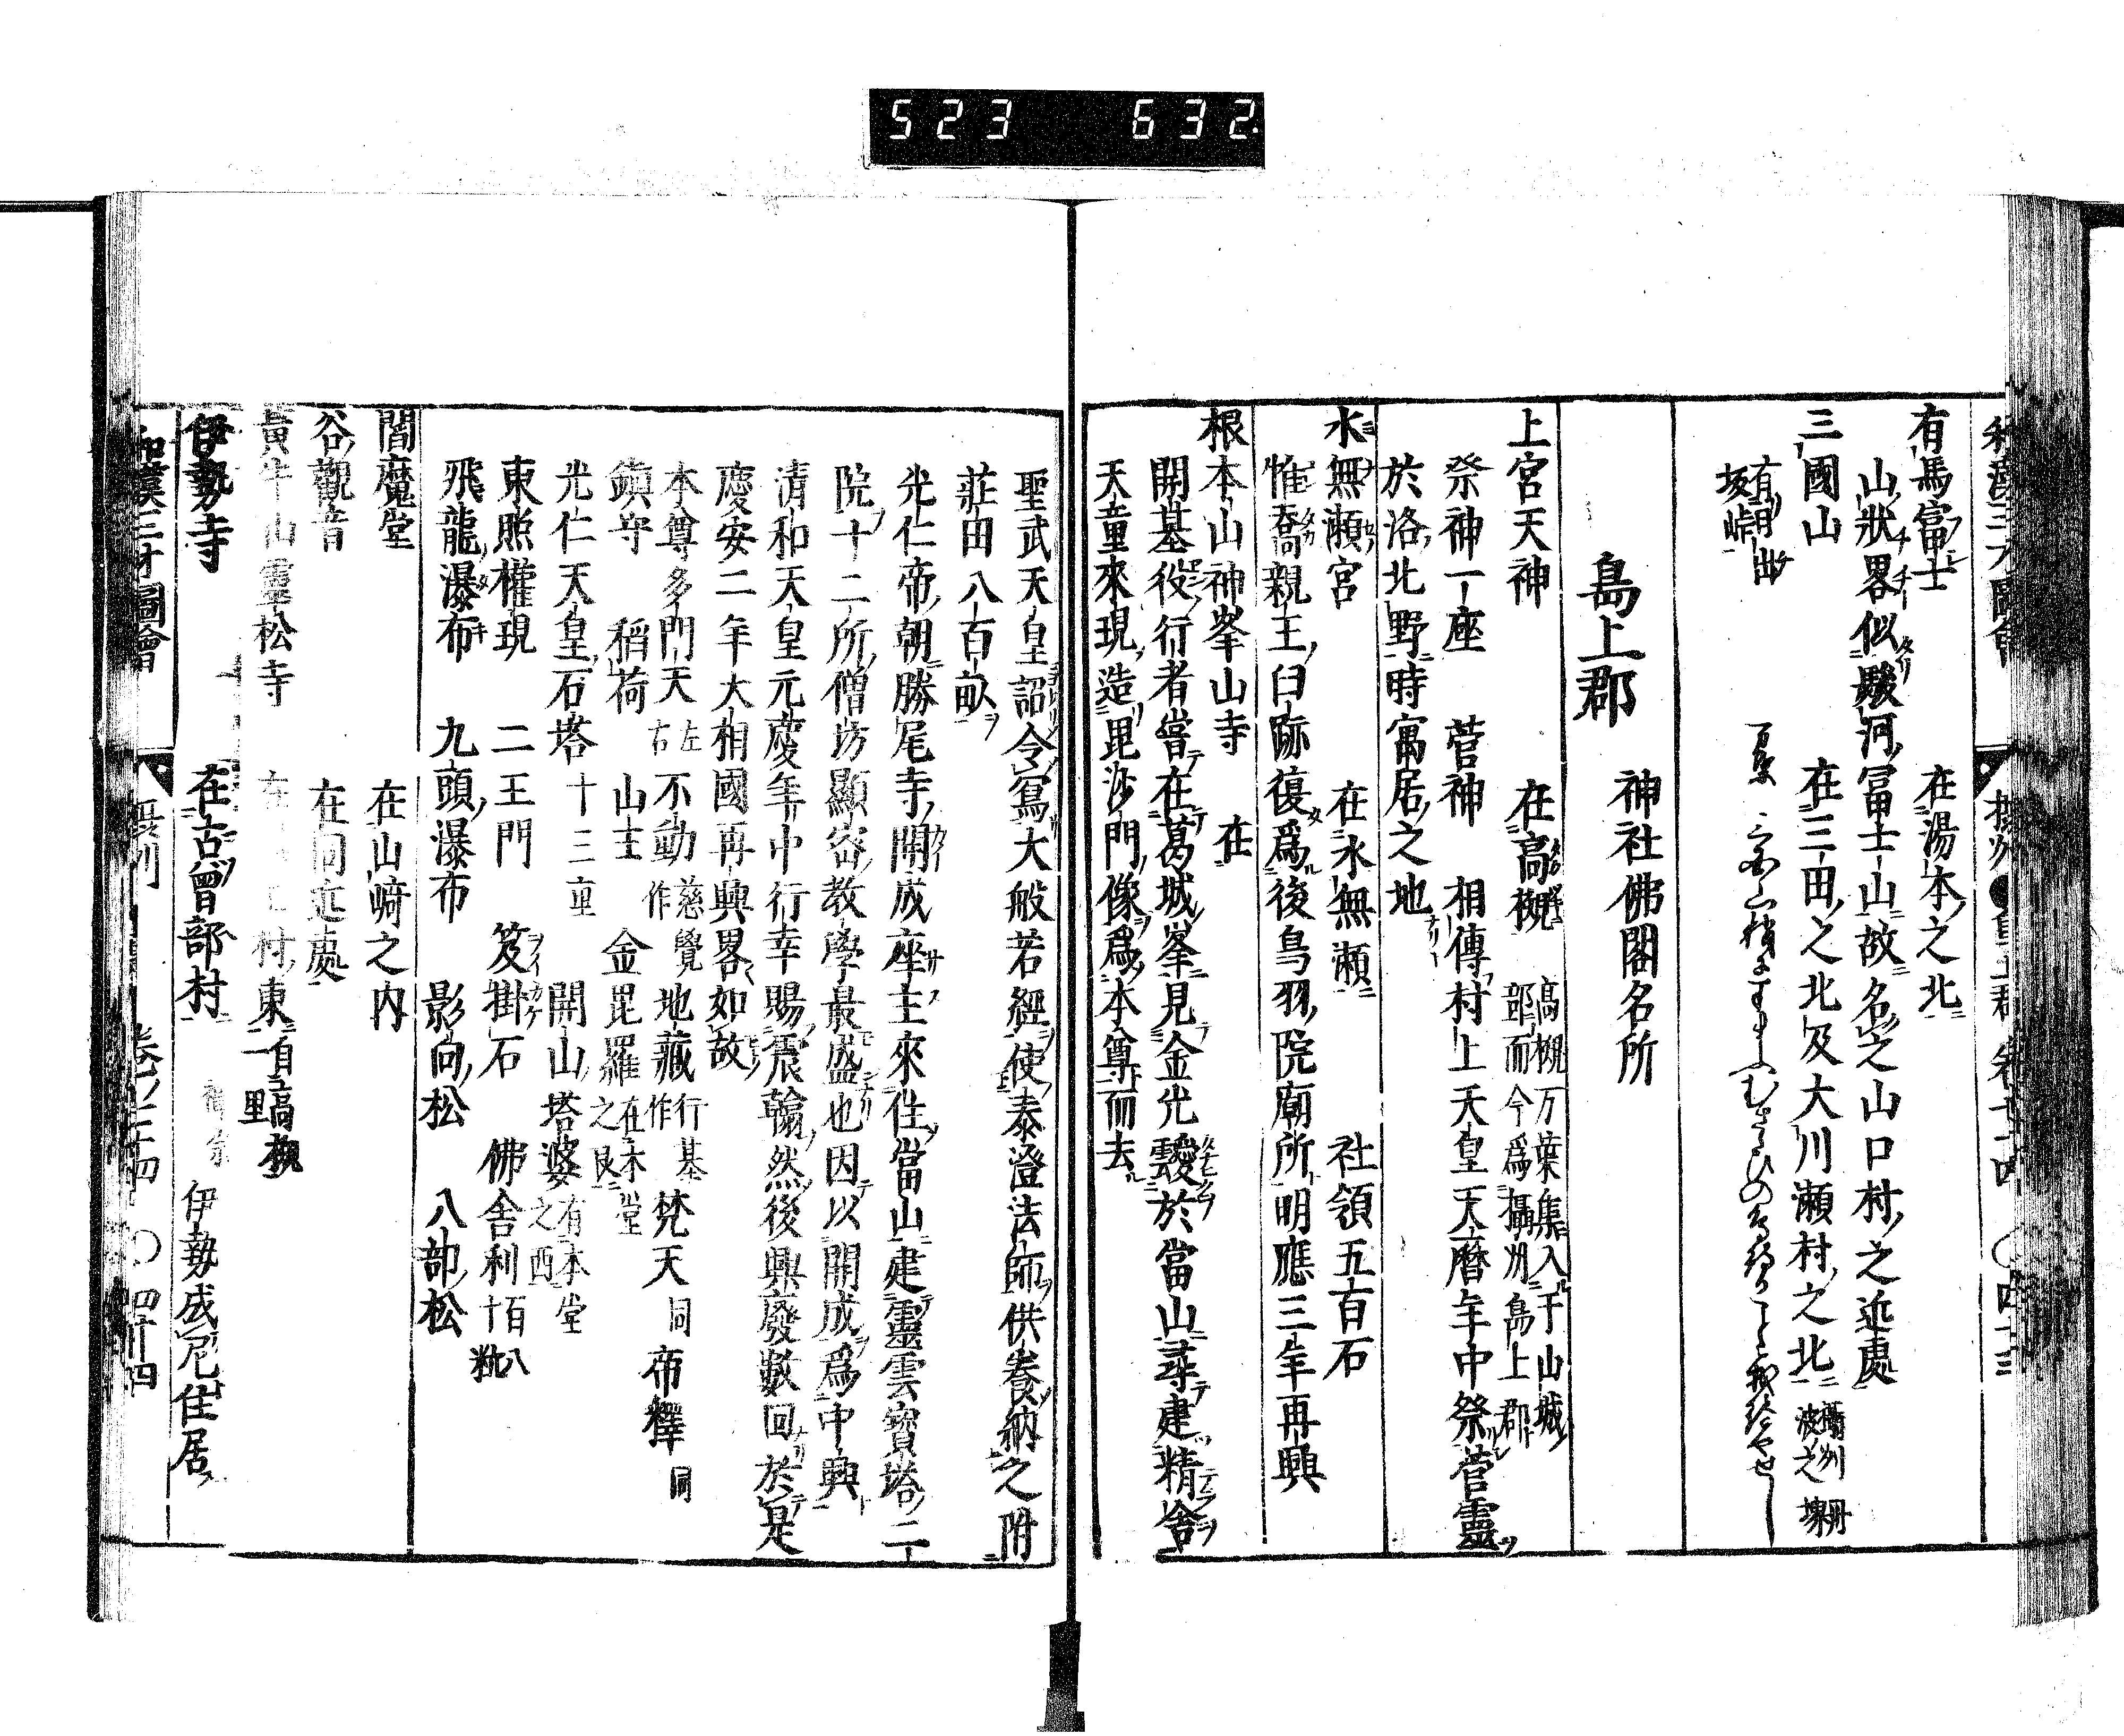 523 632
有馬冨士 在湯本之北
山狀畧似駿河冨士山故名之山口村之近處
三國山 在三田之北及大川瀬村之北
有明出
坂峠
島上郡 神社佛閣名所
上宮天神 在高槻 高槻万葉集入于山城
部而今爲攝州島上郡
祭神一座 菅神 相傳村上天皇天曆年中祭菅靈
於洛北野時寓居之地
水無瀬宮 在水無瀬 社領五百石
惟喬親王臼跡復爲後鳥羽院廟所明應三年再興
根本山神峯山寺 在
開基役行者甞在葛城峯見金光靉於當山尋建精舍
天童來現造毘沙門像爲本尊而去
聖武天皇詔令寫大般若經使泰澄法師供養納之附
莊田八百畝
光仁帝朝勝尾寺開成座主來住當山建靈雲寳塔二
院十二所僧坊顯密教學最盛也因以開成爲中興
清和天皇元慶年中行幸賜宸翰然後興廢數回於是
慶安二年大相國再興畧如故
本尊多門天 左右 不動 慈覺作 地藏 行基作 梵天 同 帝釋 同
鎮守 稻荷 山王 金毘羅 在本堂之艮
光仁天皇石塔 十三重 開山塔婆 有本堂之西
東照權現 二王門 笈掛石 佛舍利 百八十粒
飛龍瀑布 九頭瀑布 影向松 八部松
閻魔堂 在山﨑之内
谷觀音 在同近處
黄牛山靈松寺 村東 自高槻一里
伊勢寺 在古曾部村 伊勢成尼住居
和漢三才圖會 攝州 卷七十四 〇四十四